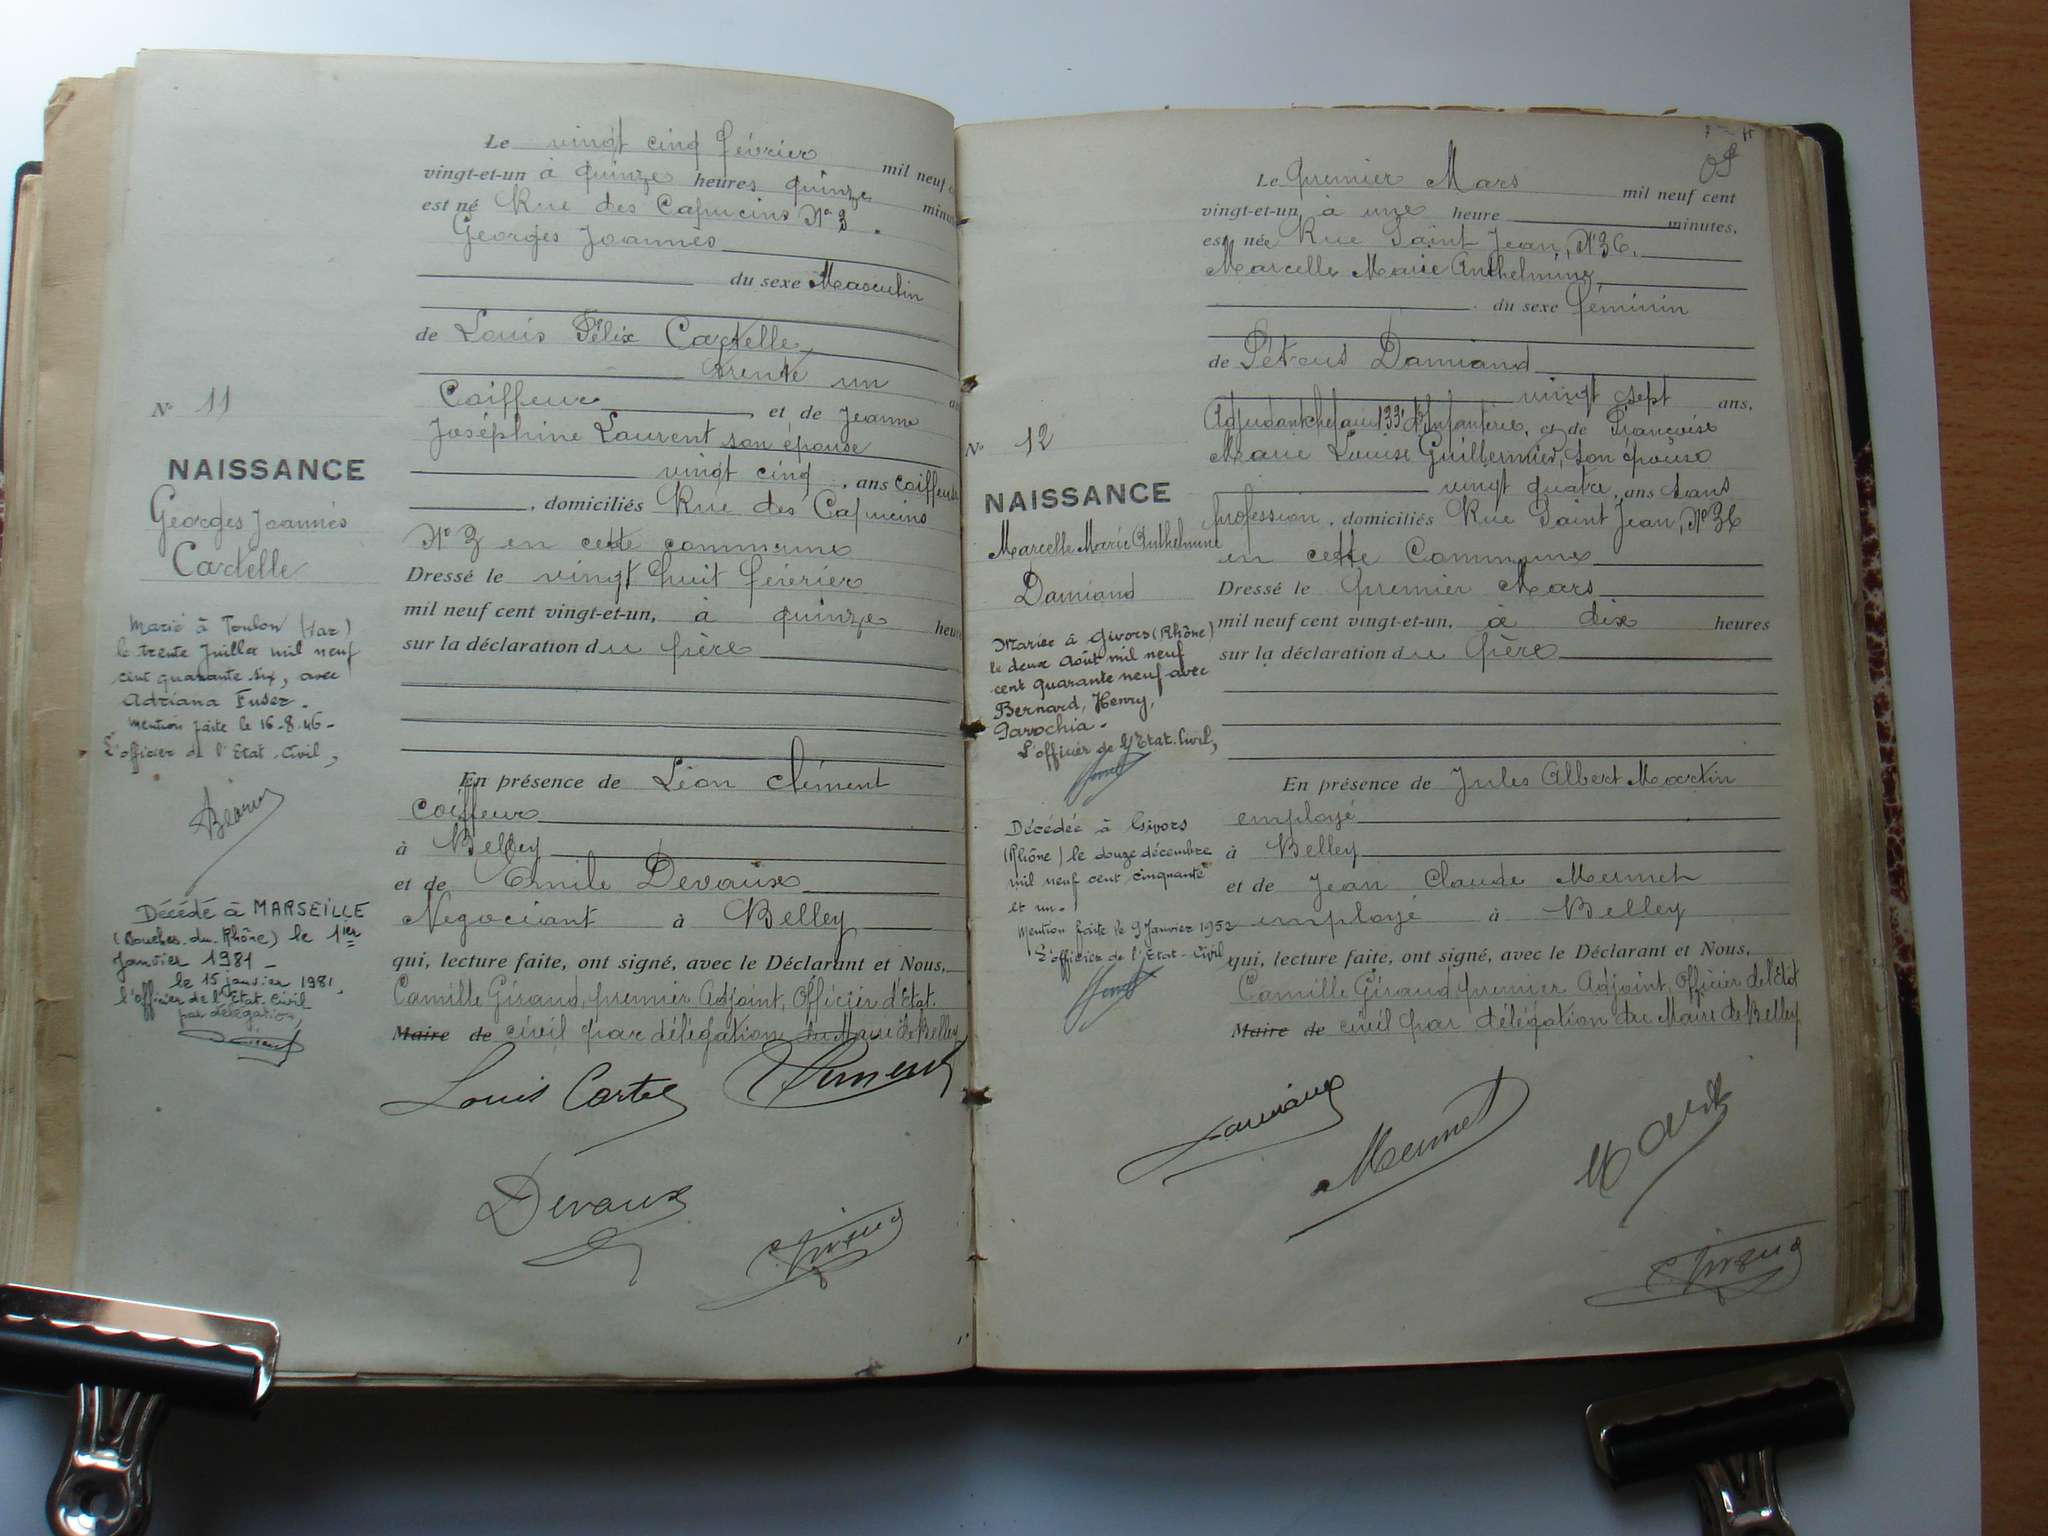 Le vingt cinq février mil neuf
vingt-et-un à quinze heures quinze
est né Rue des Capucins N° 3.
Georges Joannès
du sexe Masculin
de Louis Félix Cartelle
trente un
Coiffeur et de Jeanne
Joséphine Laurent son épouse
vingt cinq, ans coiffeuse
, domiciliés Rue des Capucins
N° 3 en cette commune
Dressé le vingt huit février
mil neuf cent vingt-et-un, à quinze
sur la déclaration du père
En présence de Léon Clément
Coiffeur
à Belley
et de Emile Devaux
Négociant à Belley
qui, lecture faite, ont signé, avec le Déclarant et Nous,
Camille Giraud, premier Adjoint, Officier d'Etat.
Maire de civil par délégation du Maire de Belley
Devaux
N° 11
NAISSANCE
Georges Joannès
Cartelle
Marié à Toulon (Var)
le trente Juillet mil neuf
cent quarante six, avec
Adriana Fuser.
Mention faite le 16-8-46-
L'officier de l'Etat-Civil,
Décédé à MARSEILLE
(Bouches-du-Rhône) le 1ier
Janvier 1981-
le 15 janvier 1981,
l'officier de l'Etat-Civil
par délégation,
Le premier Mars mil neuf cent
vingt-et-un, à une heure minutes,
est née Rue Saint Jean, N° 36.
Marcelle Marie Anthelmine
du sexe féminin
de Pétrus Damiand
vingt sept ans,
Adjudant chef au 133e d'Infanterie, et de Françoise
Marie Louise Guillermier, son épouse
vingt quatre, ans sans
profession, domiciliés Rue Saint Jean, N° 36
en cette Commune
Dressé le premier Mars
mil neuf cent vingt-et-un, à dix heures
sur la déclaration du père
En présence de Jules Albert Martin
employé
à Belley
et de Jean Claude Mermet
employé à Belley
qui, lecture faite, ont signé, avec le Déclarant et Nous,
Camille Giraud, premier Adjoint, Officier de l'Etat
Maire de civil par délégation du Maire de Belley
Mermet
N° 12
NAISSANCE
Marcelle Marie Anthelmine
Damiand
Mariée à Givors (Rhône)
le deux Août mil neuf
cent quarante neuf avec
Bernard, Henry,
Parochia.
L'officier de l'Etat-Civil,
Décédée à Givors
(Rhône) le douze décembre
mil neuf cent cinquante
et un.
Mention faite le 9 Janvier 1952
L'officier de l'Etat-Civil